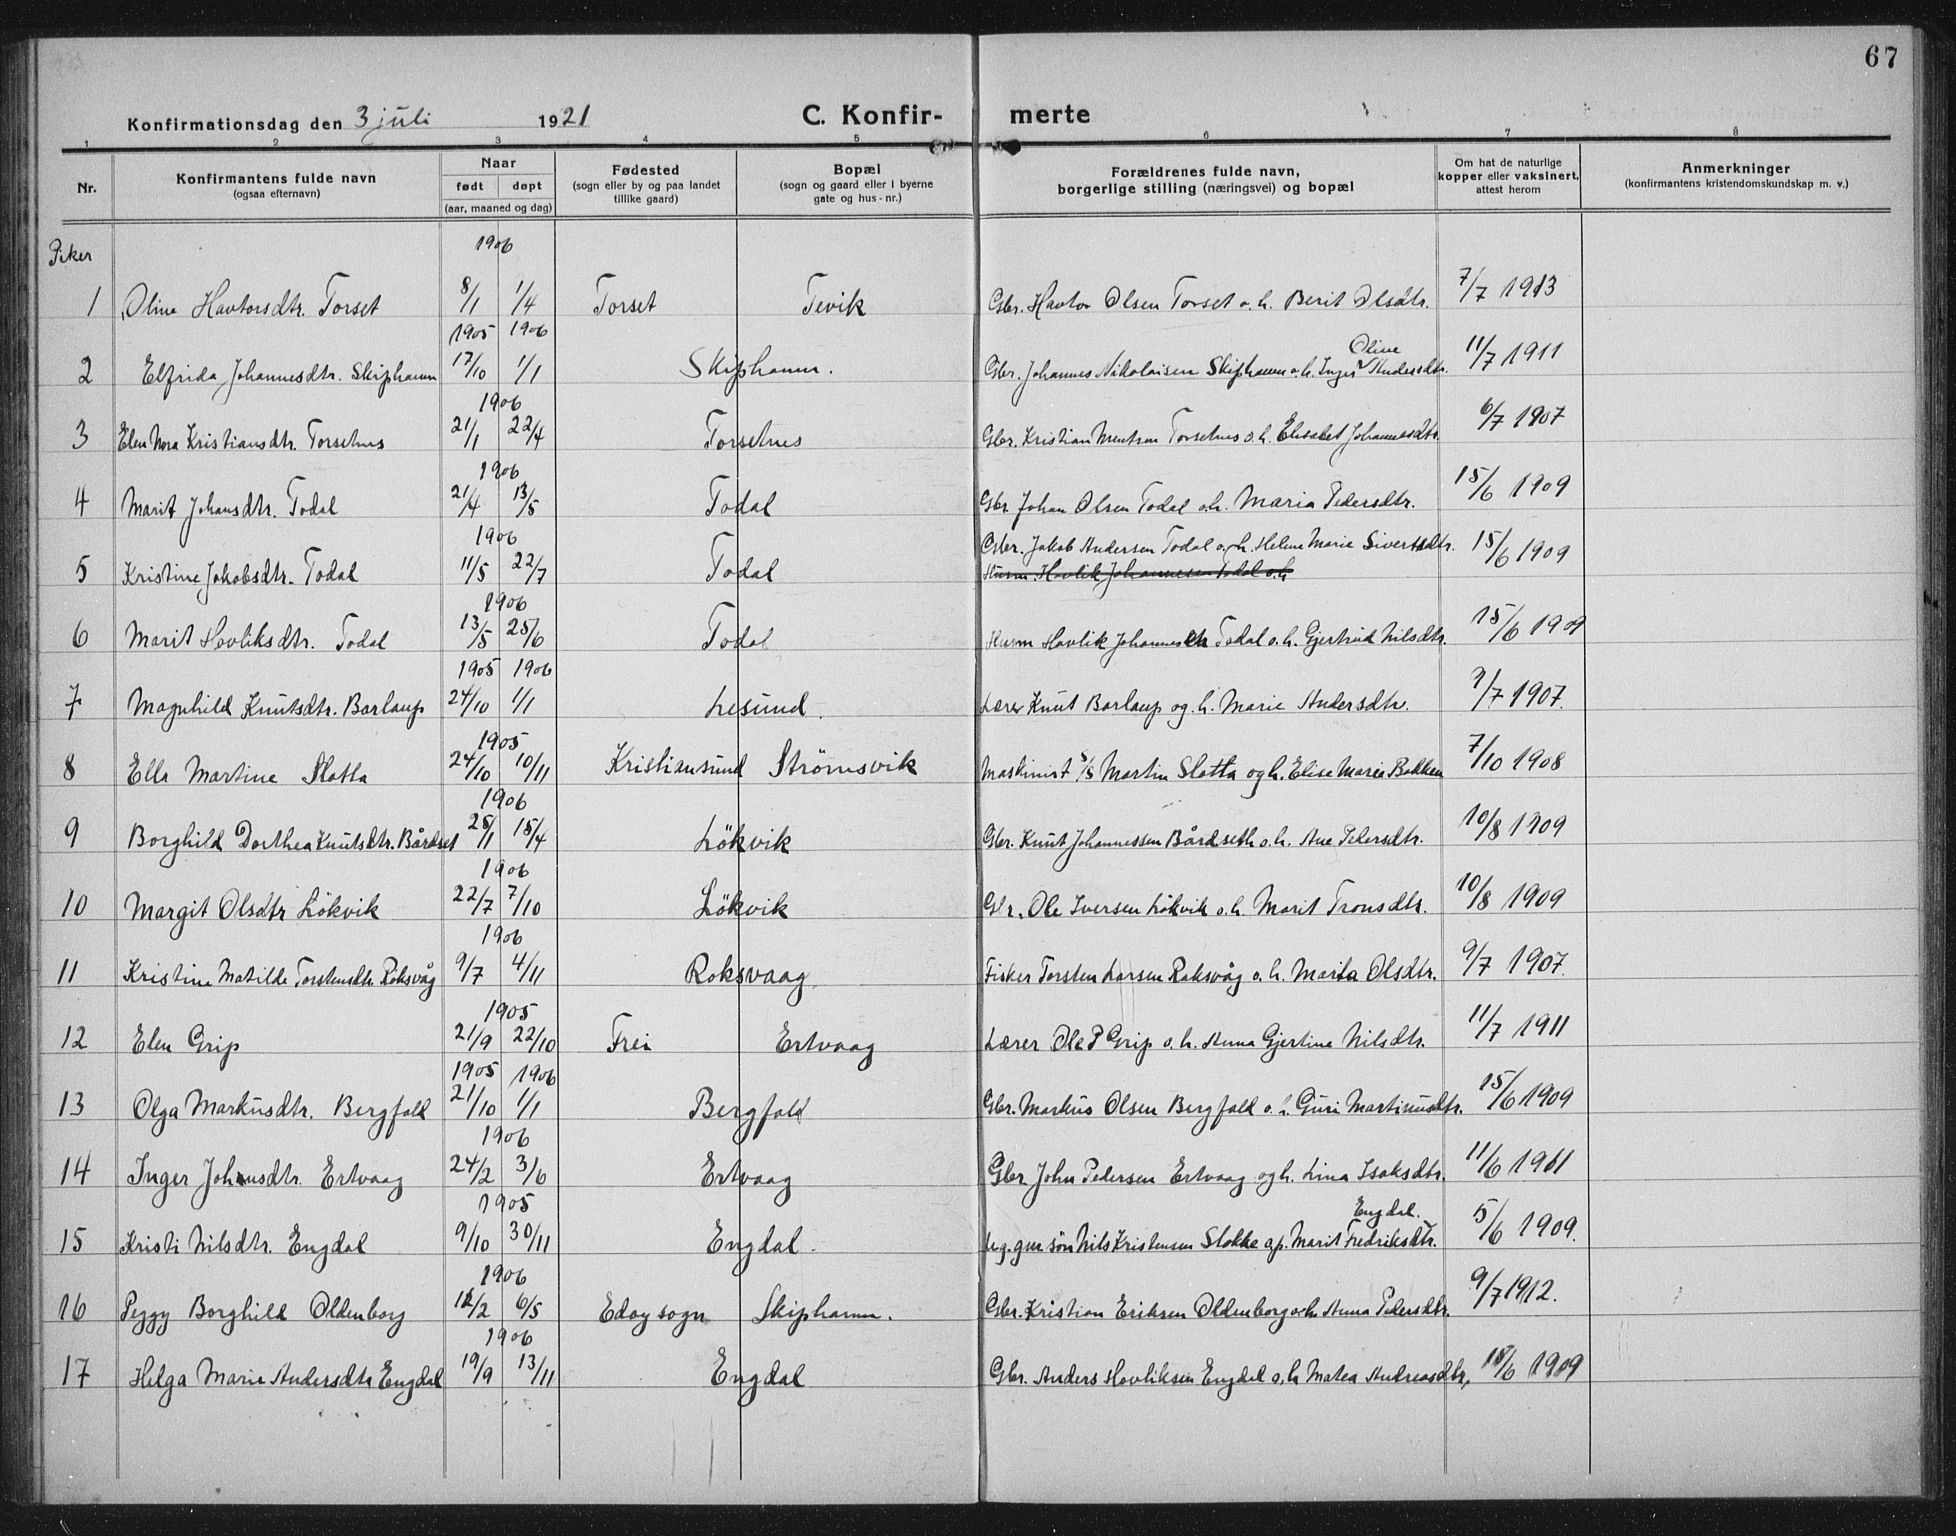 67
Konfirmationsdag den 3 juli 1921 C. Konfir- merte
1 2 3 4 5 6 7 8
Nr. Konfirmantens fulde navn (ogsaa efternavn) Naar født døpt (aar, maaned og dag) Fødested (sogn eller by og paa landet tillike gaard) Bopæl (sogn og gaard eller i byerne gate og hus-nr.) Forældrenes fulde navn, borgerlige stilling (næringsvei) og bopæl Om hat de naturlige kopper eller vaksinert, attest herom Anmerkninger (konfirmantens kristendomskundskap m. v.)
Piker 1906
1 Oline Havtorsdtr. Torset 8/1 1/4 Torset Tevik Gbr. Havtor Olsen Torset o. h. Berit Olsdtr. 7/7 1913
1905 1906
2 Elfrida Johannesdtr. Skiphamn 17/10 1/1 Skiphamn. Gbr. Johannes Nikolaisen Skiphamn o. h. Inger Oline Andersdtr. 11/7 1911
1906
3 Elen Nora Kristiansdtr. Torsetnes 21/1 22/4 Torsetnes Gbr. Kristian Mentsen Torsetnes o. h. Elisabet Johannesdtr. 6/7 1907
1906
4 Marit Johansdtr. Todal 21/4 13/5 Todal Gbr Johan Olsen Todal o.h. Maria Pedersdtr. 15/6 1909
1906
5 Kristine Jakobsdtr. Todal 11/5 22/7 Todal Gbr. Jakob Andersen Todal o. h. Helene Marie Sivertsdtr. 15/6 1909
Husm. Havlik Johannesen Todal o.h
1906
6 Marit Havliksdtr. Todal 13/5 25/6 Todal Husm Havlik Johannesen Todal o. h. Gjertrud Nilsdtr. 15/6 1909
1905 1906
7 Magnhild Knutsdtr. Barlaup 24/10 1/1 Lesund. Lærer Knut Barlaup og. h. Marie Andersdtr. 9/7 1907.
1905
8 Ella Martine Slatta 24/10 10/11 Kristiansund Strömsvik Maskinist S/S Martin Slatta og h. Elise Maria Bakken 7/10 1908
1906
9 Borghild Dorthea Knutsdtr. Bårdset 25/1 15/4 Lökvik Gbr. Knut Johannessen Bårdseth o. h. Ane Pedersdtr. 10/8 1909
1906
10 Margit Olsdtr Lökvik 22/7 7/10 Lökvik Gbr. Ole Iversen Lökvik o. h. Marit Tronsdtr. 10/8 1909
1906
11 Kristine Matilde Torstensdtr. Roksvåg 9/7 4/11 Roksvaag Fisker Torsten Larsen Roksvåg o. h. Marita Olsdtr. 9/7 1907.
1905
12 Elen Grip 21/9 22/10 Frei Ertvaag Lærer Ole P Grip o. h. Anna Gjertine Nilsdtr. 11/7 1911
1905 1906
13 Olga Markusdtr. Bergfald 21/10 1/1 Bergfald Gbr. Markus Olsen Bergfald o. h Guri Martinusdtr. 15/6 1909
1906
14 Inger Johnsdtr. Ertvaag 24/2 3/6 Ertvaag Gbr John Pedersen Ertvaag og h. Lina Isaksdtr. 11/6 1911
1905 Engdal.
15 Kristi Nilsdtr. Engdal 9/10 30/11 Engdal. Ug. gm. søn Nils Kristensen Stokke og p. Marit Fredriksdtr. 5/6 1909.
1906
16 Peggy Borghild Oldenborg 12/2 6/5 Edøy sogn Skiphamn. Gbr. Kristian Eriksen Oldenborg o h. Anna Pedersdtr. 9/7 1912.
1906
17 Helga Marie Andersdtr Engdal 19/9 13/11 Engdal Gbr. Anders Havliksen Engdal o. h Matea Andreasdtr, 15/6 1909